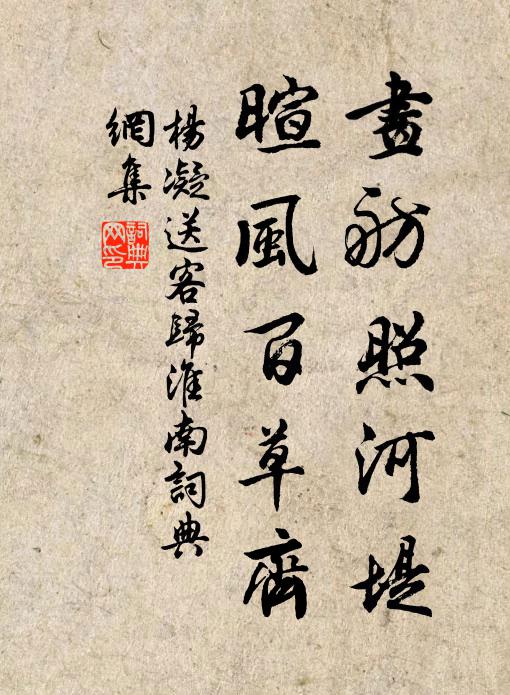 畫舫照河堤
暄風百草齊
楊凝送客歸淮南詞典
網集
詞典
网印